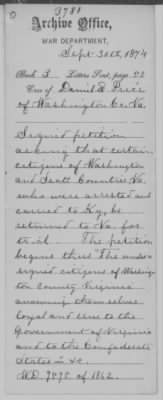 3781
Archive Office,
WAR DEPARTMENT,
Sept 30th, 1874
Book B Letters Sent, page 53
Case of Daniel E. Price
of Washington Co. Va.
Signed petition
asking that certain
citizens of Washington
and Scott Counties, Va.
who were arrested and
carried to Ky., be
returned to Va. for
trial. The petition
begins thus The under
signed citizens of Washing
ton County Virginia
avowing themselves
loyal and true to the
Government of Virginia
and to the Confederate
States in &c.
WD 9595 of 1862.